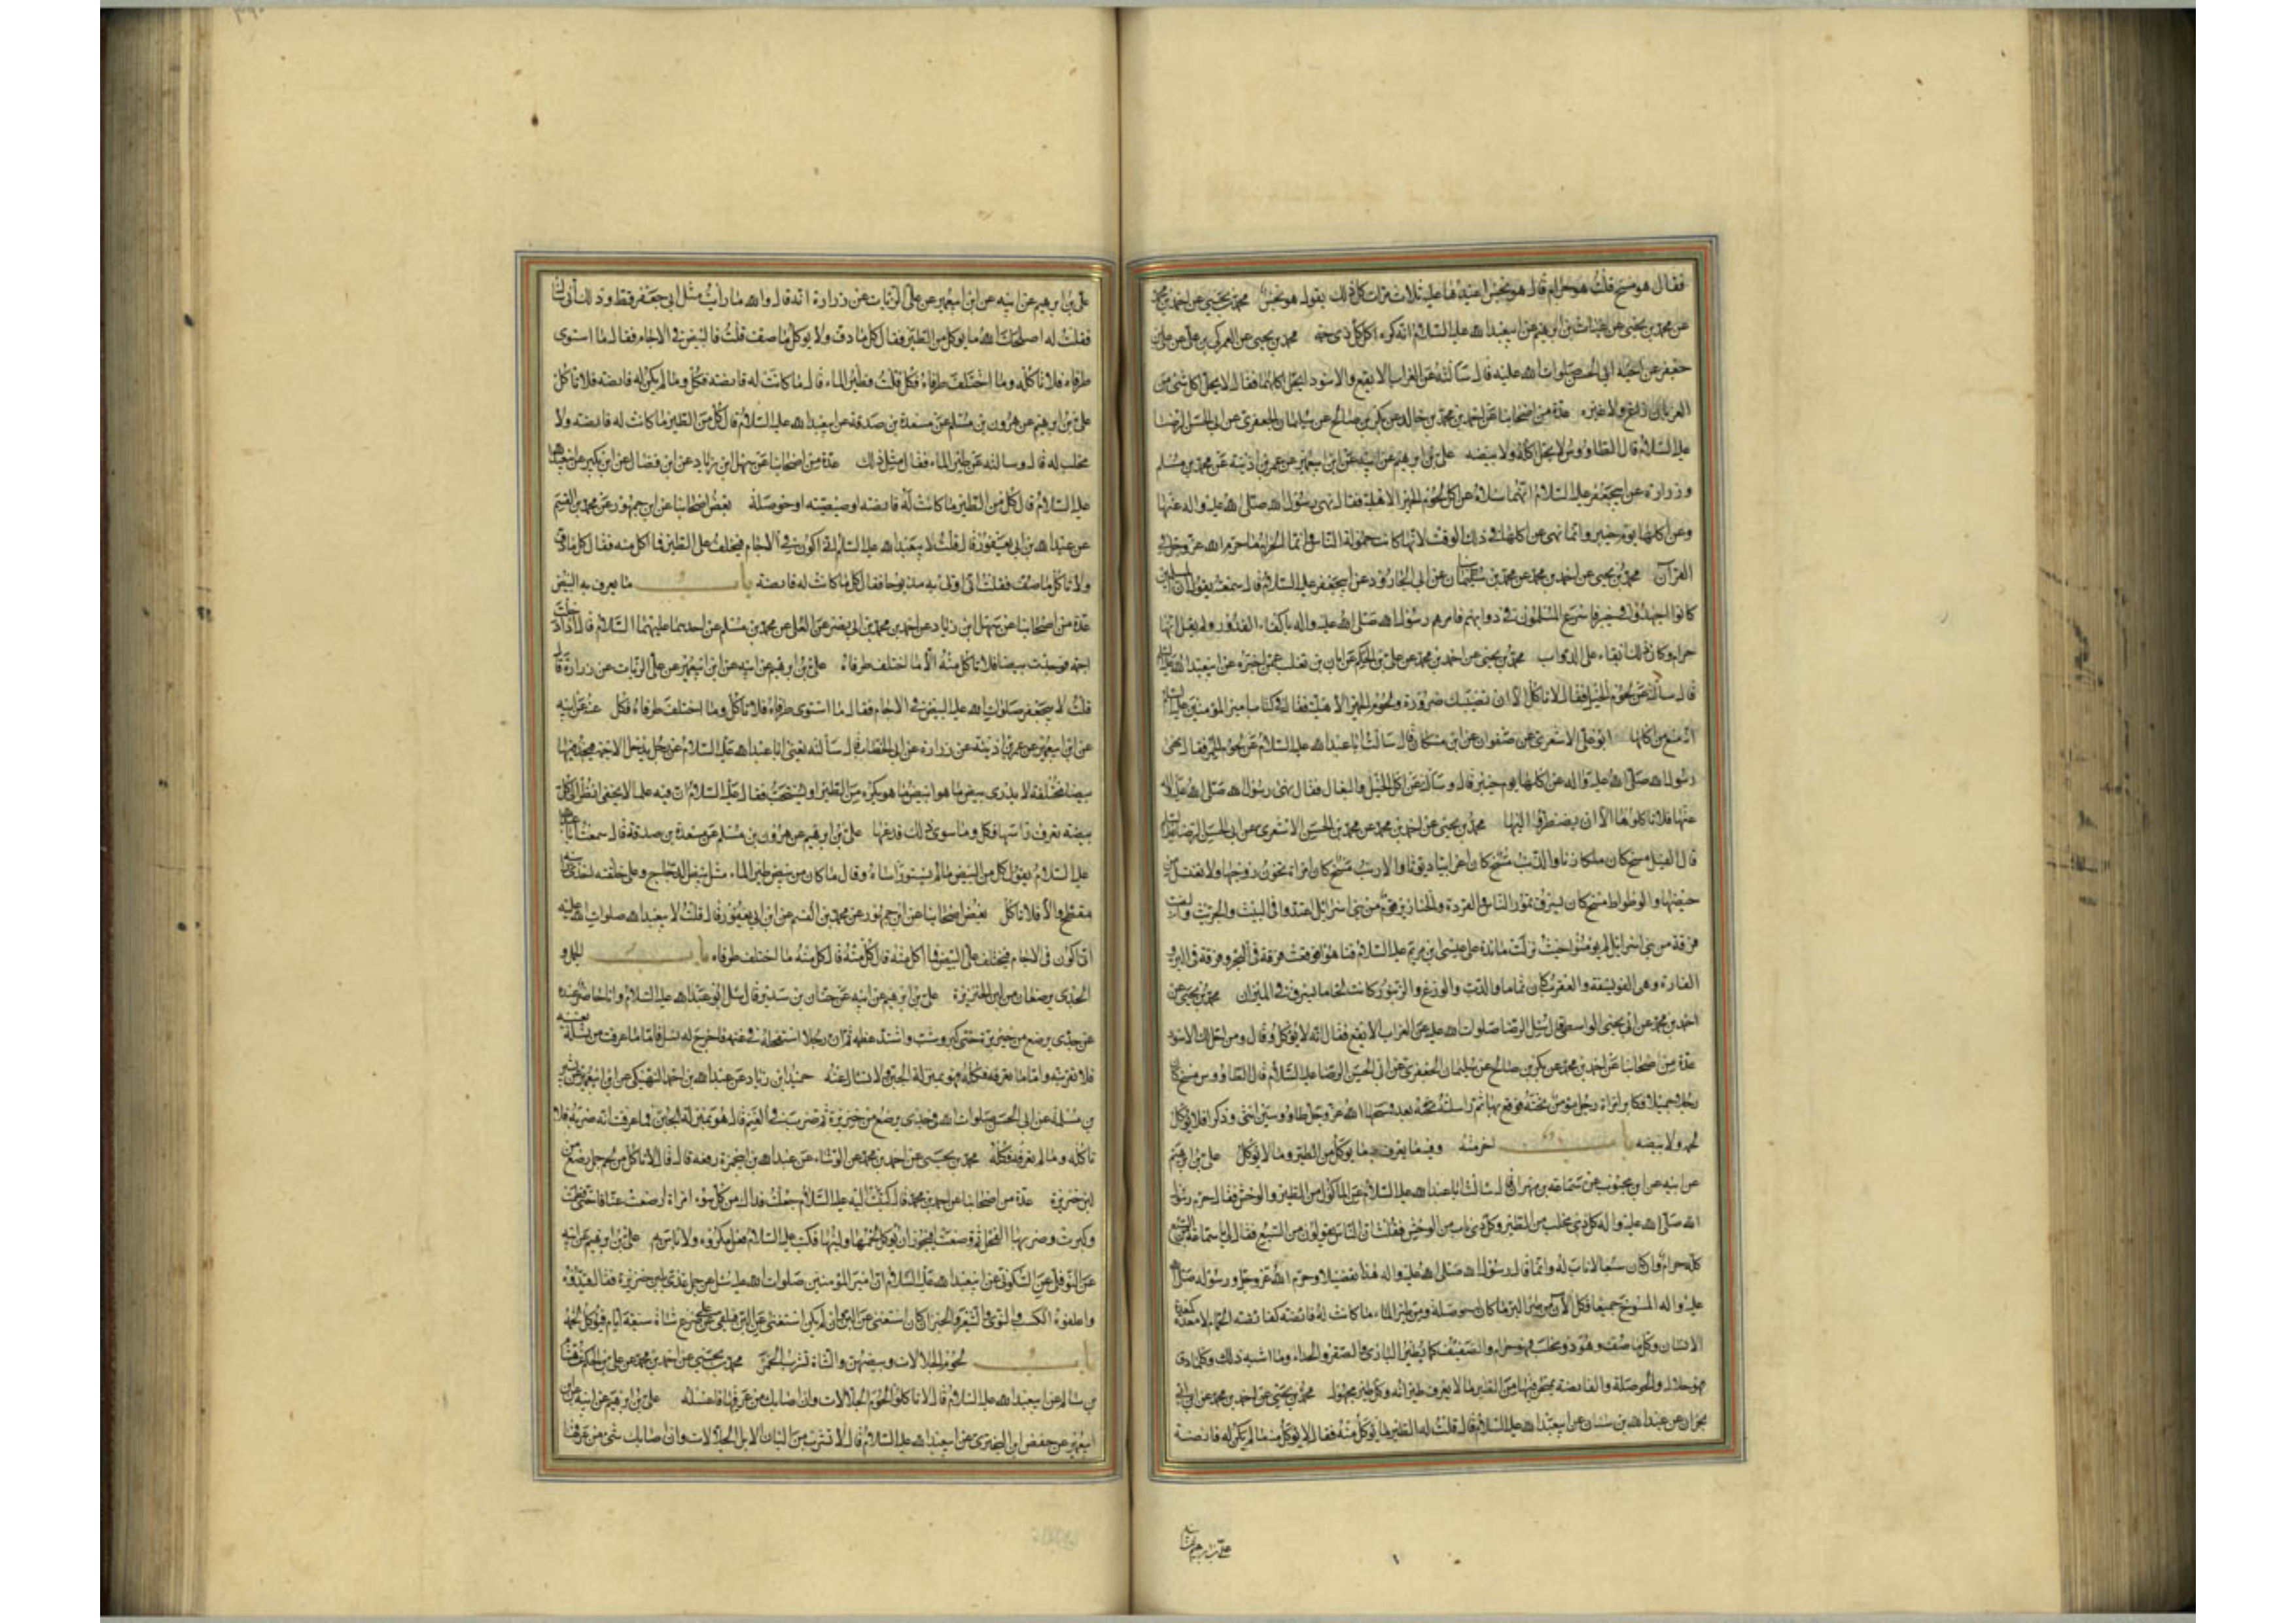 فقال هو مسخ قلت هو حرام قال هو نجس اعيدها عليه ثلاث مرات كل ذلك يقول هو نجس محمد بن يحيى عن احمد بن محمد
عن محمد بن يحيى عن غياث بن ابرهيم عن ابيعبدالله عليه السلام انه كره اكل كل ذي حمة محمد بن يحيى عن العمركي بن علي عن علي بن
جعفر عن اخيه ابي الحسن صلوات الله عليه قال سألته عن الغراب الابقع والاسود ايحل اكلهما فقال لا يحل اكل شئ من
الغربان زاغ ولا غيره عدة من اصحابنا عن احمد بن محمد بن خالد عن بكر بن صالح عن سليمان الجعفري عن ابي الحسن الرضا
عليه السلام قال الطاووس لا يحل اكله ولا بيضه علي بن ابرهيم عن ابيه عن ابن ابيعمير عن عمر بن اذينة عن محمد بن مسلم
وزرارة عن ابيجعفر عليه السلام انهما سألاه عن اكل لحوم الحمر الاهلية فقال نهى رسول الله صلى الله عليه واله عنها
وعن اكلها يوم خيبر وانما نهى عن اكلها في ذلك الوقت لانها كانت حمولة الناس وانما الحرام ما حرم الله عز وجل في
القرآن محمد بن يحيى عن احمد بن محمد عن محمد بن سنان عن ابي الجارود عن ابيجعفر عليه السلام قال سمعته يقول ان المسلمين
كانوا اجهدوا في خيبر فاسرع المسلمون في دوابهم فامرهم رسول الله صلى الله عليه واله باكفاء القدور ولم يقل انها
حرام وكان ذلك ابقاء على الدواب محمد بن يحيى عن احمد بن محمد عن علي بن الحكم عن ابان بن تغلب عمن اخبره عن ابيعبدالله عليه السلم
قال سألته عن لحوم الخيل فقال لا تأكل الا ان تصيبك ضرورة ولحوم الحمر الاهلية فقال في كتاب امير المؤمنين عليه السلم
انه منع من اكلها ابو علي الاشعري عن صفوان عن ابن مسكان قال سالت ابا عبدالله عليه السلام عن لحوم الحمر فقال نهى
رسول الله صلى الله عليه واله عن اكلها يوم خيبر قال وسألته عن اكل الخيل والبغال فقال نهى رسول الله صلى الله عليه واله
عنها فلا تأكلوها الا ان يضطروا اليها محمد بن يحيى عن احمد بن محمد عن محمد بن الحسن الاشعري عن ابي الحسن الرضا عليه السلم
قال الفيل مسخ كان ملكا زناء والذئب مسخ كان اعرابيا ديوثا والارنب مسخ كان امراة تخون زوجها ولا تغتسل من
حيضها والوطواط مسخ كان يسرق تمور الناس والقردة والخنازير قوم من بني اسرائيل اعتدوا في السبت والجريث والضب
فرقة من بني اسرائيل لم يؤمنوا حيث نزلت مائدة على عيسى ابن مريم عليه السلام فتاهوا فوقعت فرقة في البحر وفرقة في البر
الفارة وهي الفويسقة والعقرب كان نماما والدب والوزغ والزنبور كانت لحاما يسرق في الميزان محمد بن يحيى عن
احمد بن محمد عن ابي يحيى الواسطي قال سئل الرضا صلوات الله عليه عن الغراب الابقع فقال انه لا يؤكل وقال ومن احل لك الاسود
عدة من اصحابنا عن احمد بن محمد عن بكر بن صالح عن سليمان الجعفري عن ابي الحسن الرضا عليه السلام قال الطاووس مسخ كان
رجلا جميلا فكابر امراة رجل مؤمن تحبه فوقع بها ثم راسلته بعد فمسخهما الله عز وجل طاووسين انثى وذكرا فلا يؤكل
لحمه ولا بيضه باب اخر منه وفيه ما يعرف به ما يؤكل من الطير وما لا يؤكل علي بن ابرهيم
عن ابيه عن ابن محبوب عن سماعة بن مهران قال سالت ابا عبدالله عليه السلام عن الماكول من الطير والوحش فقال حرم رسول
الله صلى الله عليه واله كل ذي مخلب من الطير وكل ذي ناب من الوحش فقلت ان الناس يقولون من السبع فقال لي يا سماعة السبع
كله حرام وان كان سبعا لا ناب له وانما قال رسول الله صلى الله عليه واله هذا تفصيلا وحرم الله عز وجل ورسوله صلى الله
عليه واله المسوخ جميعا فكل الآن من طير البر ما كان له حوصلة ومن طير الماء ما كانت له قانصة كقانصة الحمام لا معدة كمعدة
الانسان وكل ما صف وهو ذو مخلب فهو حرام والصفيف كما يطير البازي والصقر والحداء وما اشبه ذلك وكل ما دف
فهو حلال والحوصلة والقانصة يمتحن بها من الطير ما لا يعرف طيرانه وكل طير مجهول محمد بن يحيى عن احمد بن محمد عن ابن ابي
نجران عن عبدالله بن سنان عن ابيعبدالله عليه السلام قال قلت له الطير ما يؤكل منه فقال لا يؤكل منه ما لم يكن له قانصة
علي بن ابرهيم
علي بن ابرهيم عن ابيه عن ابن ابيعمير عن علي الزيات عن زرارة انه قال والله ما رأيت مثل ابي جعفر قط وذلك اني سألته
فقلت له اصلحك الله ما يؤكل من الطير فقال كل ما دف ولا يؤكل ما صف قلت فالبيض في الاجام فقال ما استوى
طرفاه فلا تاكله وما اختلف طرفاه فكل قلت وطير الماء قال ما كانت له قانصة فكل وما لم يكن له قانصة فلا تاكل
علي بن ابرهيم عن هرون بن مسلم عن مسعدة بن صدقة عن ابيعبدالله عليه السلام قال كل من الطير ما كانت له قانصة ولا
مخلب له قال وسالته عن طير الماء فقال مثل ذلك عدة من اصحابنا عن سهل ابن زياد عن ابن فضال عن ابن بكير عن ابيعبدالله
عليه السلام قال كل من الطير ما كانت له قانصة او صيصية او حوصلة بعض اصحابنا عن ابن جمهور عن محمد بن القسم
عن عبدالله بن ابي يعفور قال قلت لابيعبدالله عليه السلام اني اكون في الاجام فيختلف علي الطير فما اكل منه فقال كل ما دف
ولا تاكل ما صف فقلت اني اوتى به مذبوحا فقال كل ما كانت له قانصة باب ما يعرف به البيض
عدة من اصحابنا عن سهل ابن زياد عن احمد بن محمد بن ابي نصر عن العلا عن محمد بن مسلم عن احدهما عليهما السلام قال اذا دخلت
اجمة فوجدت بيضا فلا تاكل منه الا ما اختلف طرفاه علي بن ابرهيم عن ابيه عن ابن ابيعمير عن علي الزيات عن زرارة قال
قلت لابيجعفر صلوات الله عليه البيض في الاجام فقال ما استوى طرفاه فلا تاكل وما اختلف طرفاه فكل عنه عن ابيه
عن ابن ابيعمير عن عمر بن اذينة عن زرارة عن ابي الخطاب قال سألته يعني ابا عبدالله عليه السلام عن رجل يدخل الاجمة فيجد فيها
بيضا مختلفة لا يدري بيض ما هو ابيض ما هو يكره من الطير او يستحب فقال عليه السلام ان فيه علما لا يخفى انظر الى كل
بيضة تعرف راسها فكل وما سوى ذلك فدعها علي بن ابرهيم عن هرون بن مسلم عن مسعدة بن صدقة قال سمعت ابا عبدالله
عليه السلام يقول كل من البيض ما لم يستو رأساه وقال ما كان من بيض طير الماء مثل بيض الدجاج وعلى خلقته احدى راسيه
مفرطح والا فلا تاكل بعض اصحابنا عن ابن جمهور عن محمد بن القسم عن ابن ابي يعفور قال قلت لابيعبدالله صلوات الله عليه
اني اكون في الاجام فيختلف علي البيض فما اكل منه قال كل منه قال كل منه ما اختلف طرفاه باب الحمل و
الجدي يرضعان من لبن الخنزيرة علي بن ابرهيم عن ابيه عن حنان بن سدير قال سئل ابو عبدالله عليه السلام وانا حاضر عنده
عن جدي يرضع من خنزيرة حتى كبر وشب واشتد عظمه ثم ان رجلا استفحله في غنمه فاخرج له نسل فقال اما ما عرفت من نسله بعينه
فلا تقربنه واما ما لم تعرفه فكله فهو بمنزلة الجبن ولا تسأل عنه حميد ابن زياد عن عبدالله بن احمد النهيكي عن ابن ابيعمير عن بشر
بن مسلمة عن ابي الحسن صلوات الله في جدي يرضع من خنزيرة ثم ضرب في الغنم قال هو بمنزلة الجبن فما عرفت انه ضربه فلا
تاكله وما لم تعرفه فكله محمد بن يحيى عن احمد بن محمد عن الوشاء عن عبدالله بن سنان عن ابي حمزة رفعه قال قال لا تاكل من لحم حمل رضع من
لبن خنزيرة عدة من اصحابنا عن احمد بن محمد قال كتبت اليه عليه السلام جعلت فداك من كل سوء امراة ارضعت عناقا حتى فطمت
وكبرت وضربها الفحل ثم وضعت افيجوز ان يؤكل لحمها ولبنها فكتب عليه السلام فعل مكروه ولا باس به علي بن ابرهيم عن ابيه
عن النوفلي عن السكوني عن ابيعبدالله عليه السلام ان امير المؤمنين صلوات الله عليه سئل عن حمل غذي بلبن خنزيرة فقال قيدوه
واعلفوه الكسب والنوى والشعير والخبز ان كان استغنى عن اللبن وان لم يكن استغنى عن اللبن فيلقى على ضرع شاة سبعة ايام ثم يؤكل لحمه
باب لحوم الجلالات وبيضهن والشاة تشرب الخمر محمد بن يحيى عن احمد بن محمد عن علي بن الحكم عن هشام
بن سالم عن ابيعبدالله عليه السلام قال لا تاكلوا لحوم الجلالات وان اصابك من عرقها فاغسله علي بن ابرهيم عن ابيه عن ابن
ابيعمير عن حفص ابن البختري عن ابيعبدالله عليه السلام قال لا تشرب من البان الابل الجلالات وان اصابك شئ من عرقها